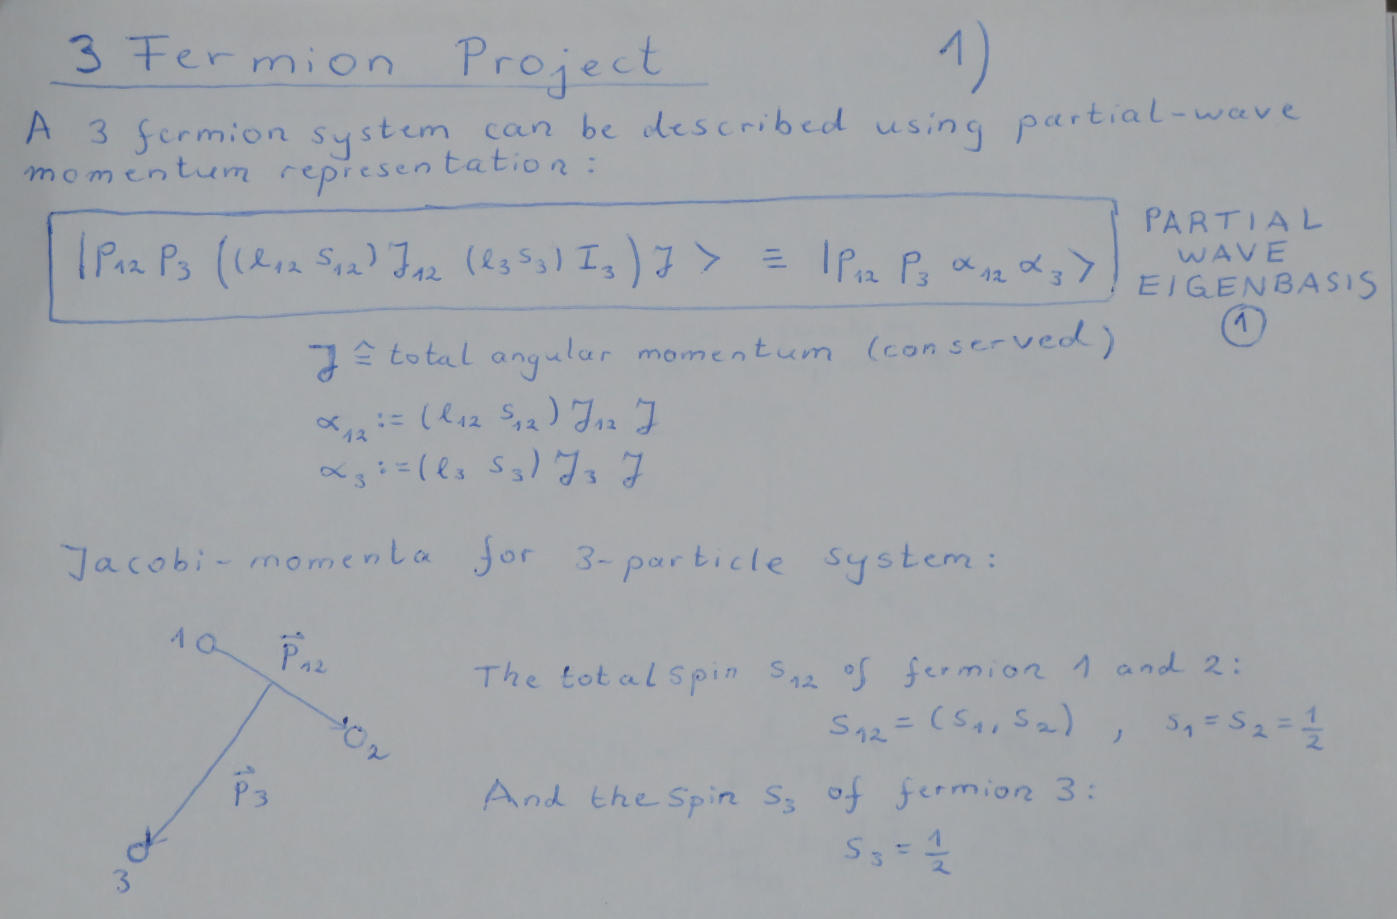 3 Fermion Project 1)
A 3 fermion system can be described using partial-wave
momentum representation:
|p₁₂ p₃ ((l₁₂ s₁₂) J₁₂ (l₃ s₃) I₃) J > ≡ |p₁₂ p₃ α₁₂ α₃>
PARTIAL
WAVE
EIGENBASIS
①
J ≙ total angular momentum (conserved)
α₁₂ := (l₁₂ s₁₂) J₁₂ J
α₃ := (l₃ s₃) J₃ J
Jacobi-momenta for 3-particle system:
1
p⃗₁₂
2
p⃗₃
3
The total spin s₁₂ of fermion 1 and 2:
s₁₂ = (s₁, s₂) , s₁ = s₂ = 1/2
And the spin s₃ of fermion 3:
s₃ = 1/2